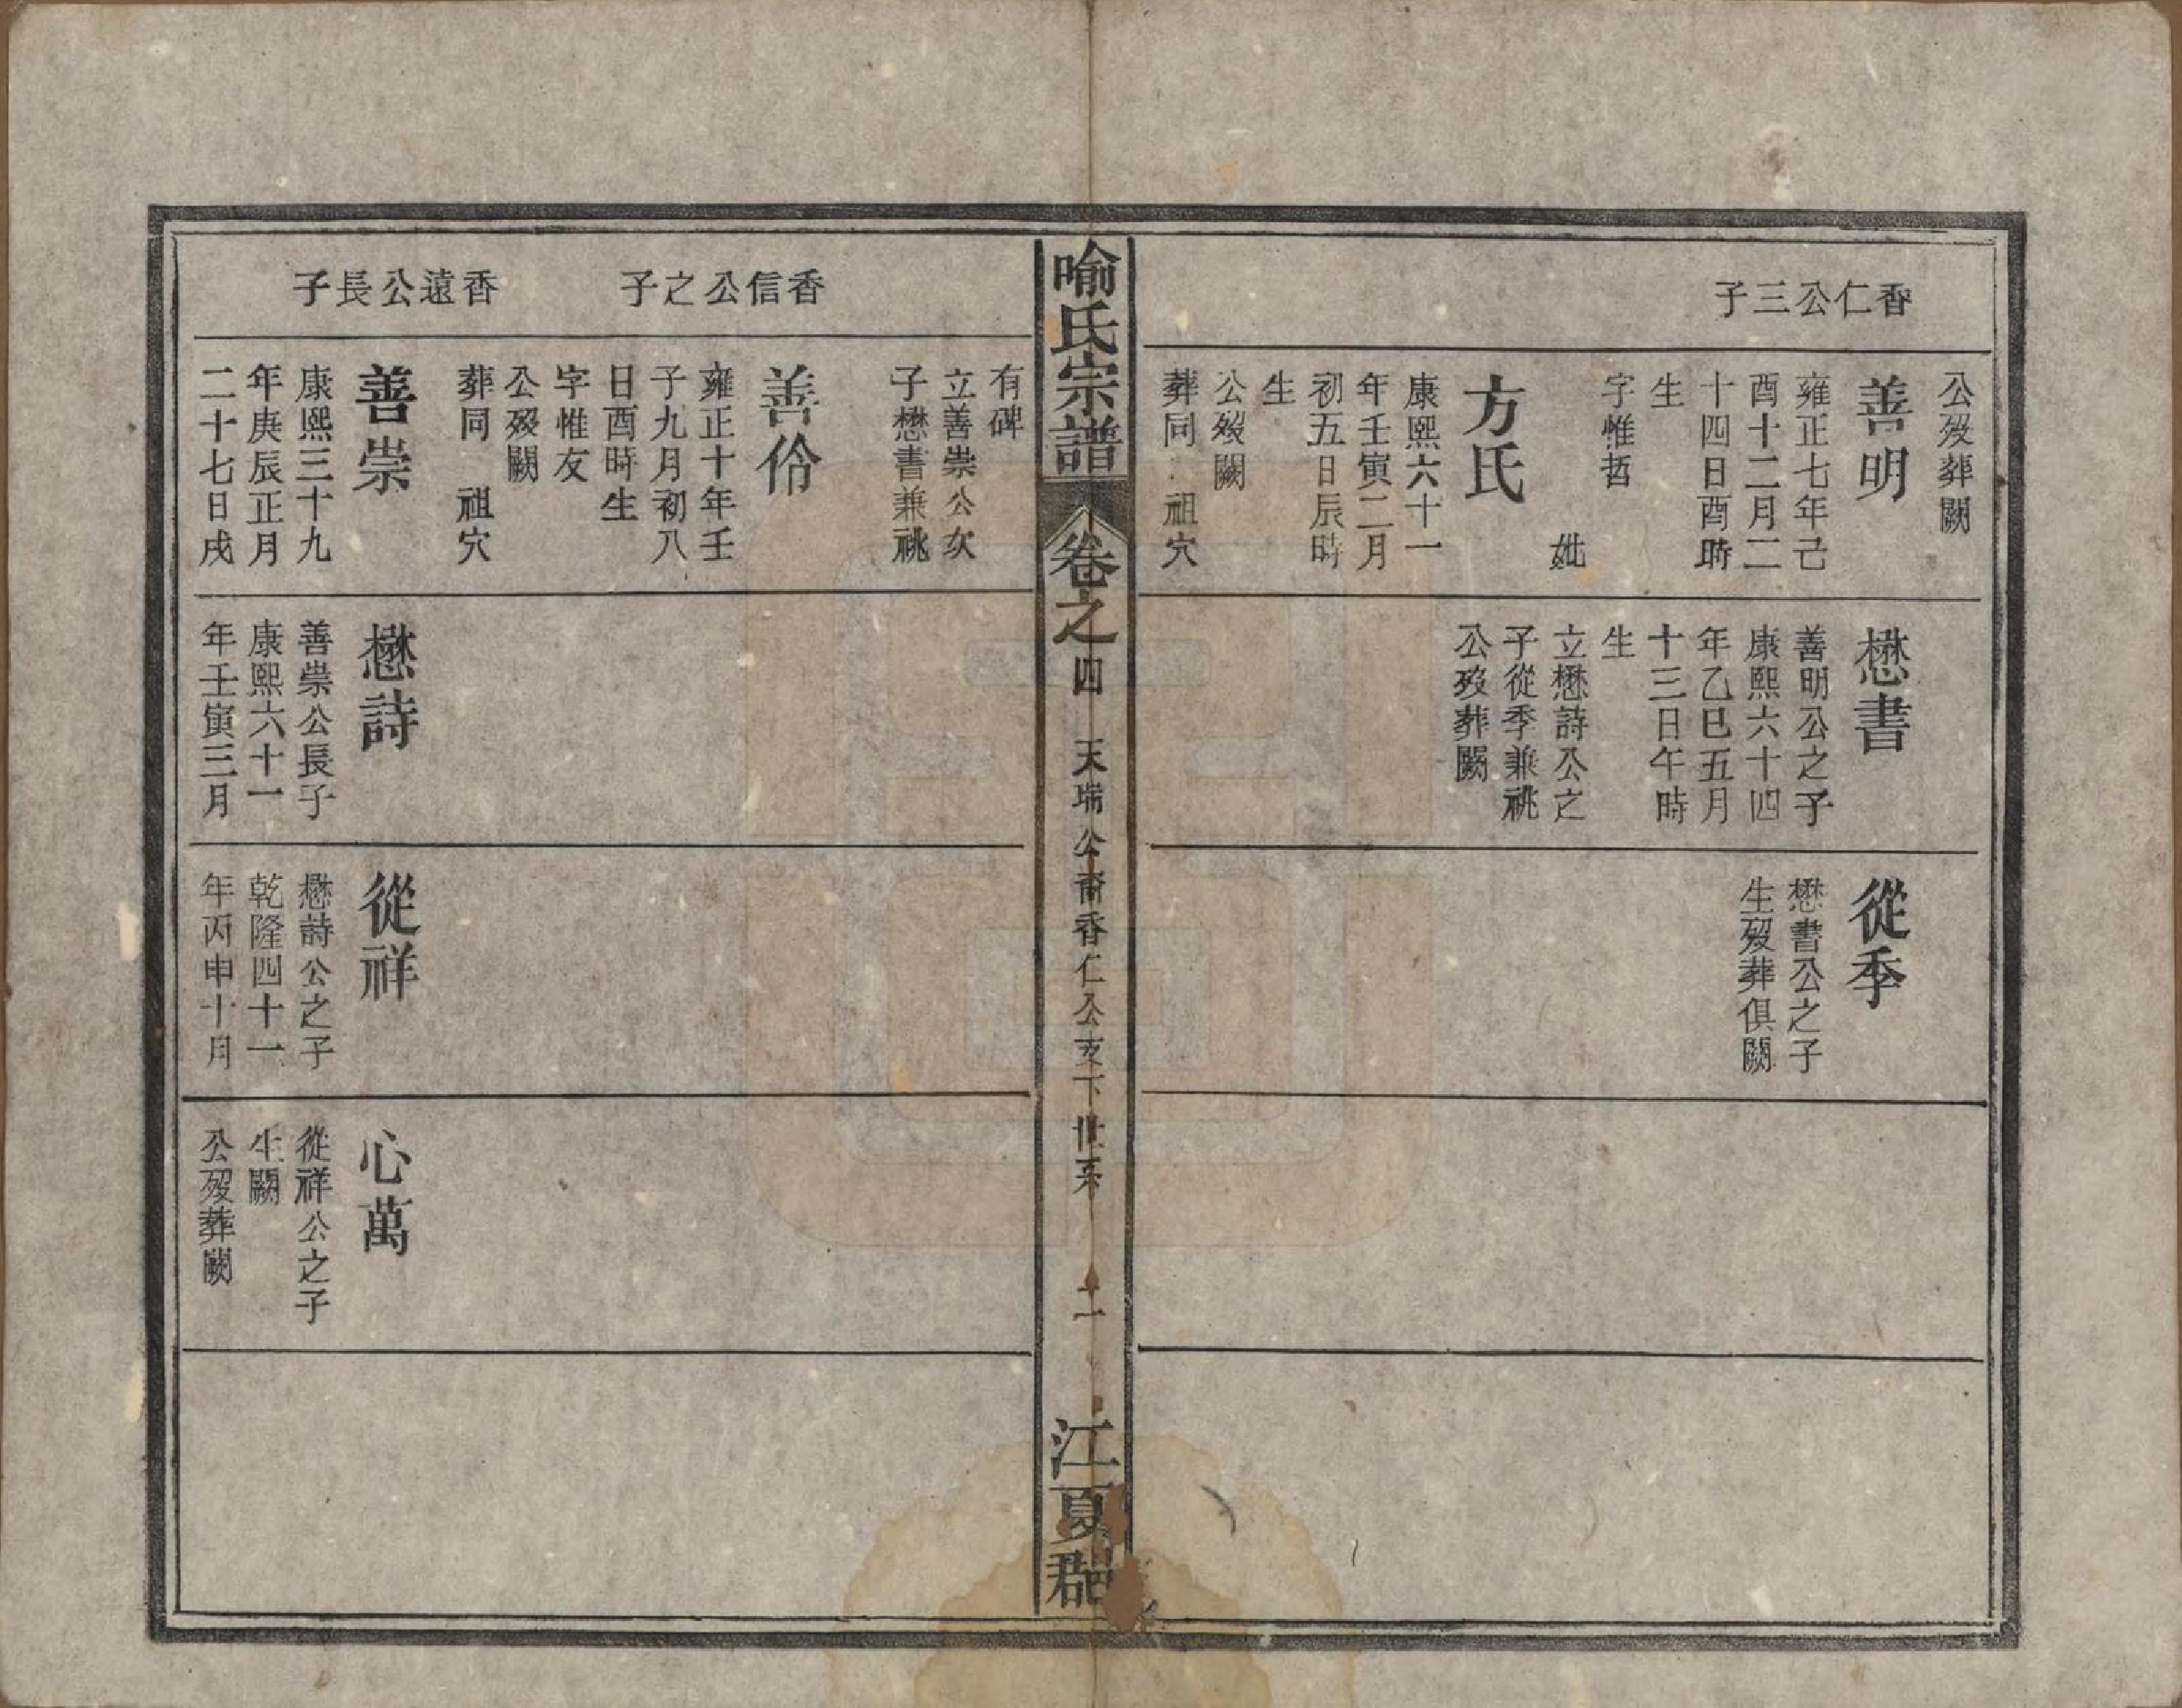 香仁公三子
公歿葬闕
善明
雍正七年己
酉十二月二
十四日酉時
生
字惟哲
妣
方氏
康熙六十一
年壬寅二月
初五日辰時
生
公歿闕
葬同祖穴
懋書
善明公之子
康熙六十四
年乙巳五月
十三日午時
生
立懋詩公之
子從季兼祧
公歿葬闕
從季
懋書公之子
生歿葬俱闕
喻氏宗譜
卷之四
天瑞公裔香仁公支下世系
二
江夏郡
香信公之子
香遠公長子
有碑
立善崇公次
子懋書兼祧
善伶
雍正十年壬
子九月初八
日酉時生
字惟友
公歿闕
葬同祖穴
善崇
康熙三十九
年庚辰正月
二十七日戌
懋詩
善崇公長子
康熙六十一
年壬寅三月
從祥
懋詩公之子
乾隆四十一
年丙申十月
心萬
從祥公之子
生闕
公歿葬闕